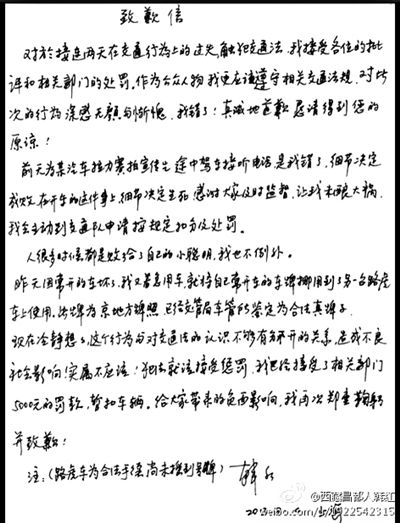 致歉信
对于接连两天在交通行为上的过失,触犯交通法.我接受各位的批
评和相关部门的处罚.作为公众人物我更应该遵守相关交通法规.对此
次的行为深感无颜与惭愧.我错了!真诚地道歉恳请得到您的
原谅!
前天为某汽车接力赛拍宣传片途中驾车接听电话是我错了.细节决定
成败在开车的这件事上细节决定生死感谢大家及时监督,让我未酿大祸.
我会主动到交通队申请按规定扣分及处罚.
人很多时候都是败给了自己的小聪明.我也不例外.
昨天因常开的车坏了,我又着急用车就将自己常开车的车牌挪用到了另一台路虎
车上使用.此牌为京地方牌照.已经交管局车管所鉴定为合法真牌子.
现在冷静想,这个行为与对交通法的认识不够有分不开的关系,造成不良
社会影响!实属不应该!犯法就该接受惩罚.我已经接受了相关部门
5000元的罚款,暂扣车辆.给大家带来的负面影响,我再次郑重鞠躬
并致歉!
注:(路虎车为合法手续尚未换到号牌) 韩红
@西藏昌都人韩红
weibo.com/u/1922542315